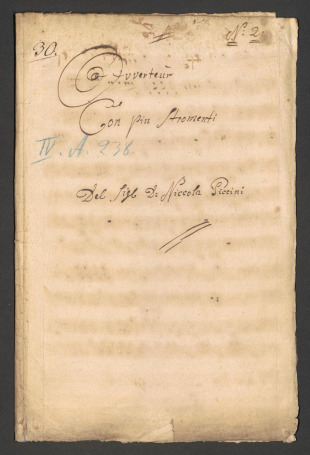 30.
N: 2
Ouverteur
Con piu Stromenti
IV. A. 238
Del Sigl D: Niccola Piccini